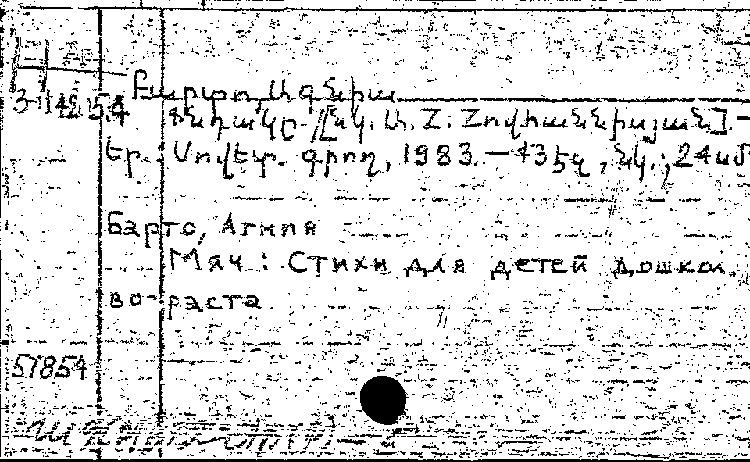 Բարտո, Ագնիա
3-114254 Գնդակը /[Նկ. Ա. Հ. Հովհաննիսյան]. -
Եր.: Սովետ. գրող, 1983. - 43 էջ, նկ.; 24 սմ
Барто, Агния
Мяч: Стихи для детей дошкол.
во-раста
57854